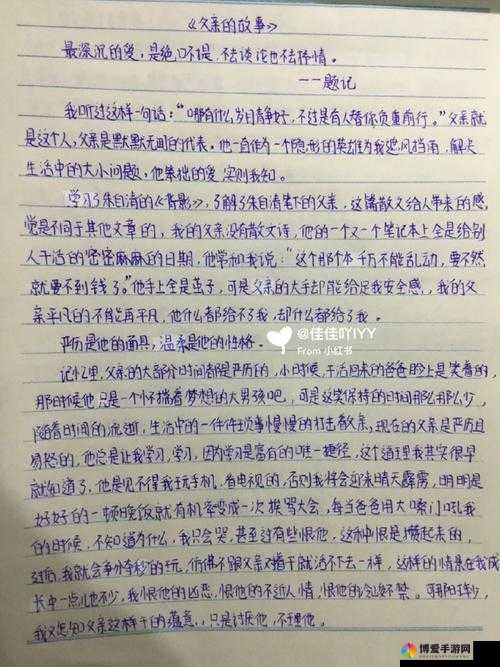 《父亲的故事》
最深沉的爱，是绝口不提，不去谈论也不去抒情。
——题记
我听过这样一句话："哪有什么岁月静好，不过是有人替你负重前行。"父亲就
是这个人，父亲是默默无闻的代表。他一直作为一个隐形的英雄为我遮风挡雨，解决
生活中的大小问题，他笨拙的爱，实则我知。
学习了朱自清的《背影》，了解了朱自清笔下的父亲，这篇散文给人带来的感
觉是不同于其他文章的，我的父亲没有散文诗，他的一个又一个笔记本上全是给别
人干活的密密麻麻的日期，他常和我说："这个那个本千万不能乱动，要不然
就要不到钱了。"他手上全是茧子，可是父亲的大手却能给足我安全感，我的父
亲平凡的不能再平凡，他什么都给不了我，却什么都给了我。
严厉是他的面具，温柔是他的性格。
@佳佳吖IYY
From 小红书
记忆里，父亲的大部分时间都是严厉的，小时候，干活回来的爸爸脸上是笑着的，
那时候他只是一个怀揣着梦想的大男孩吧，可是这笑保持的时间那么那么少，
随着时间的流逝，生活中的一件件琐事慢慢的打击着父亲，现在的父亲是严厉且
易怒的，他总是让我学习，学习，因为学习是富有的唯一捷径，这个道理我其实很早
就知道了，他是见不得我玩手机，看电视的，否则我将会迎来晴天霹雳，明明是
好好的一顿晚饭就有机率变成一次挨骂大会，每当爸爸用大嗓门吼我
的时候，不知道为什么，我只会哭，甚至还有些恨他，这种恨是攒起来的，
过后，我就会争分夺秒的玩，仿佛不跟父亲对着干就活不下去一样，这样的情景在我成
长中一点儿也不少，我恨他的凶恶，恨他的不近人情，恨他的忍俊不禁。可那时年少，
我又怎知父亲这样干的蕴意，只是讨厌他，不理他。
博爱手游网